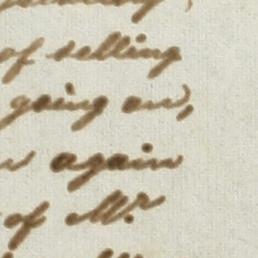 of selling
going on,
again
of Mr